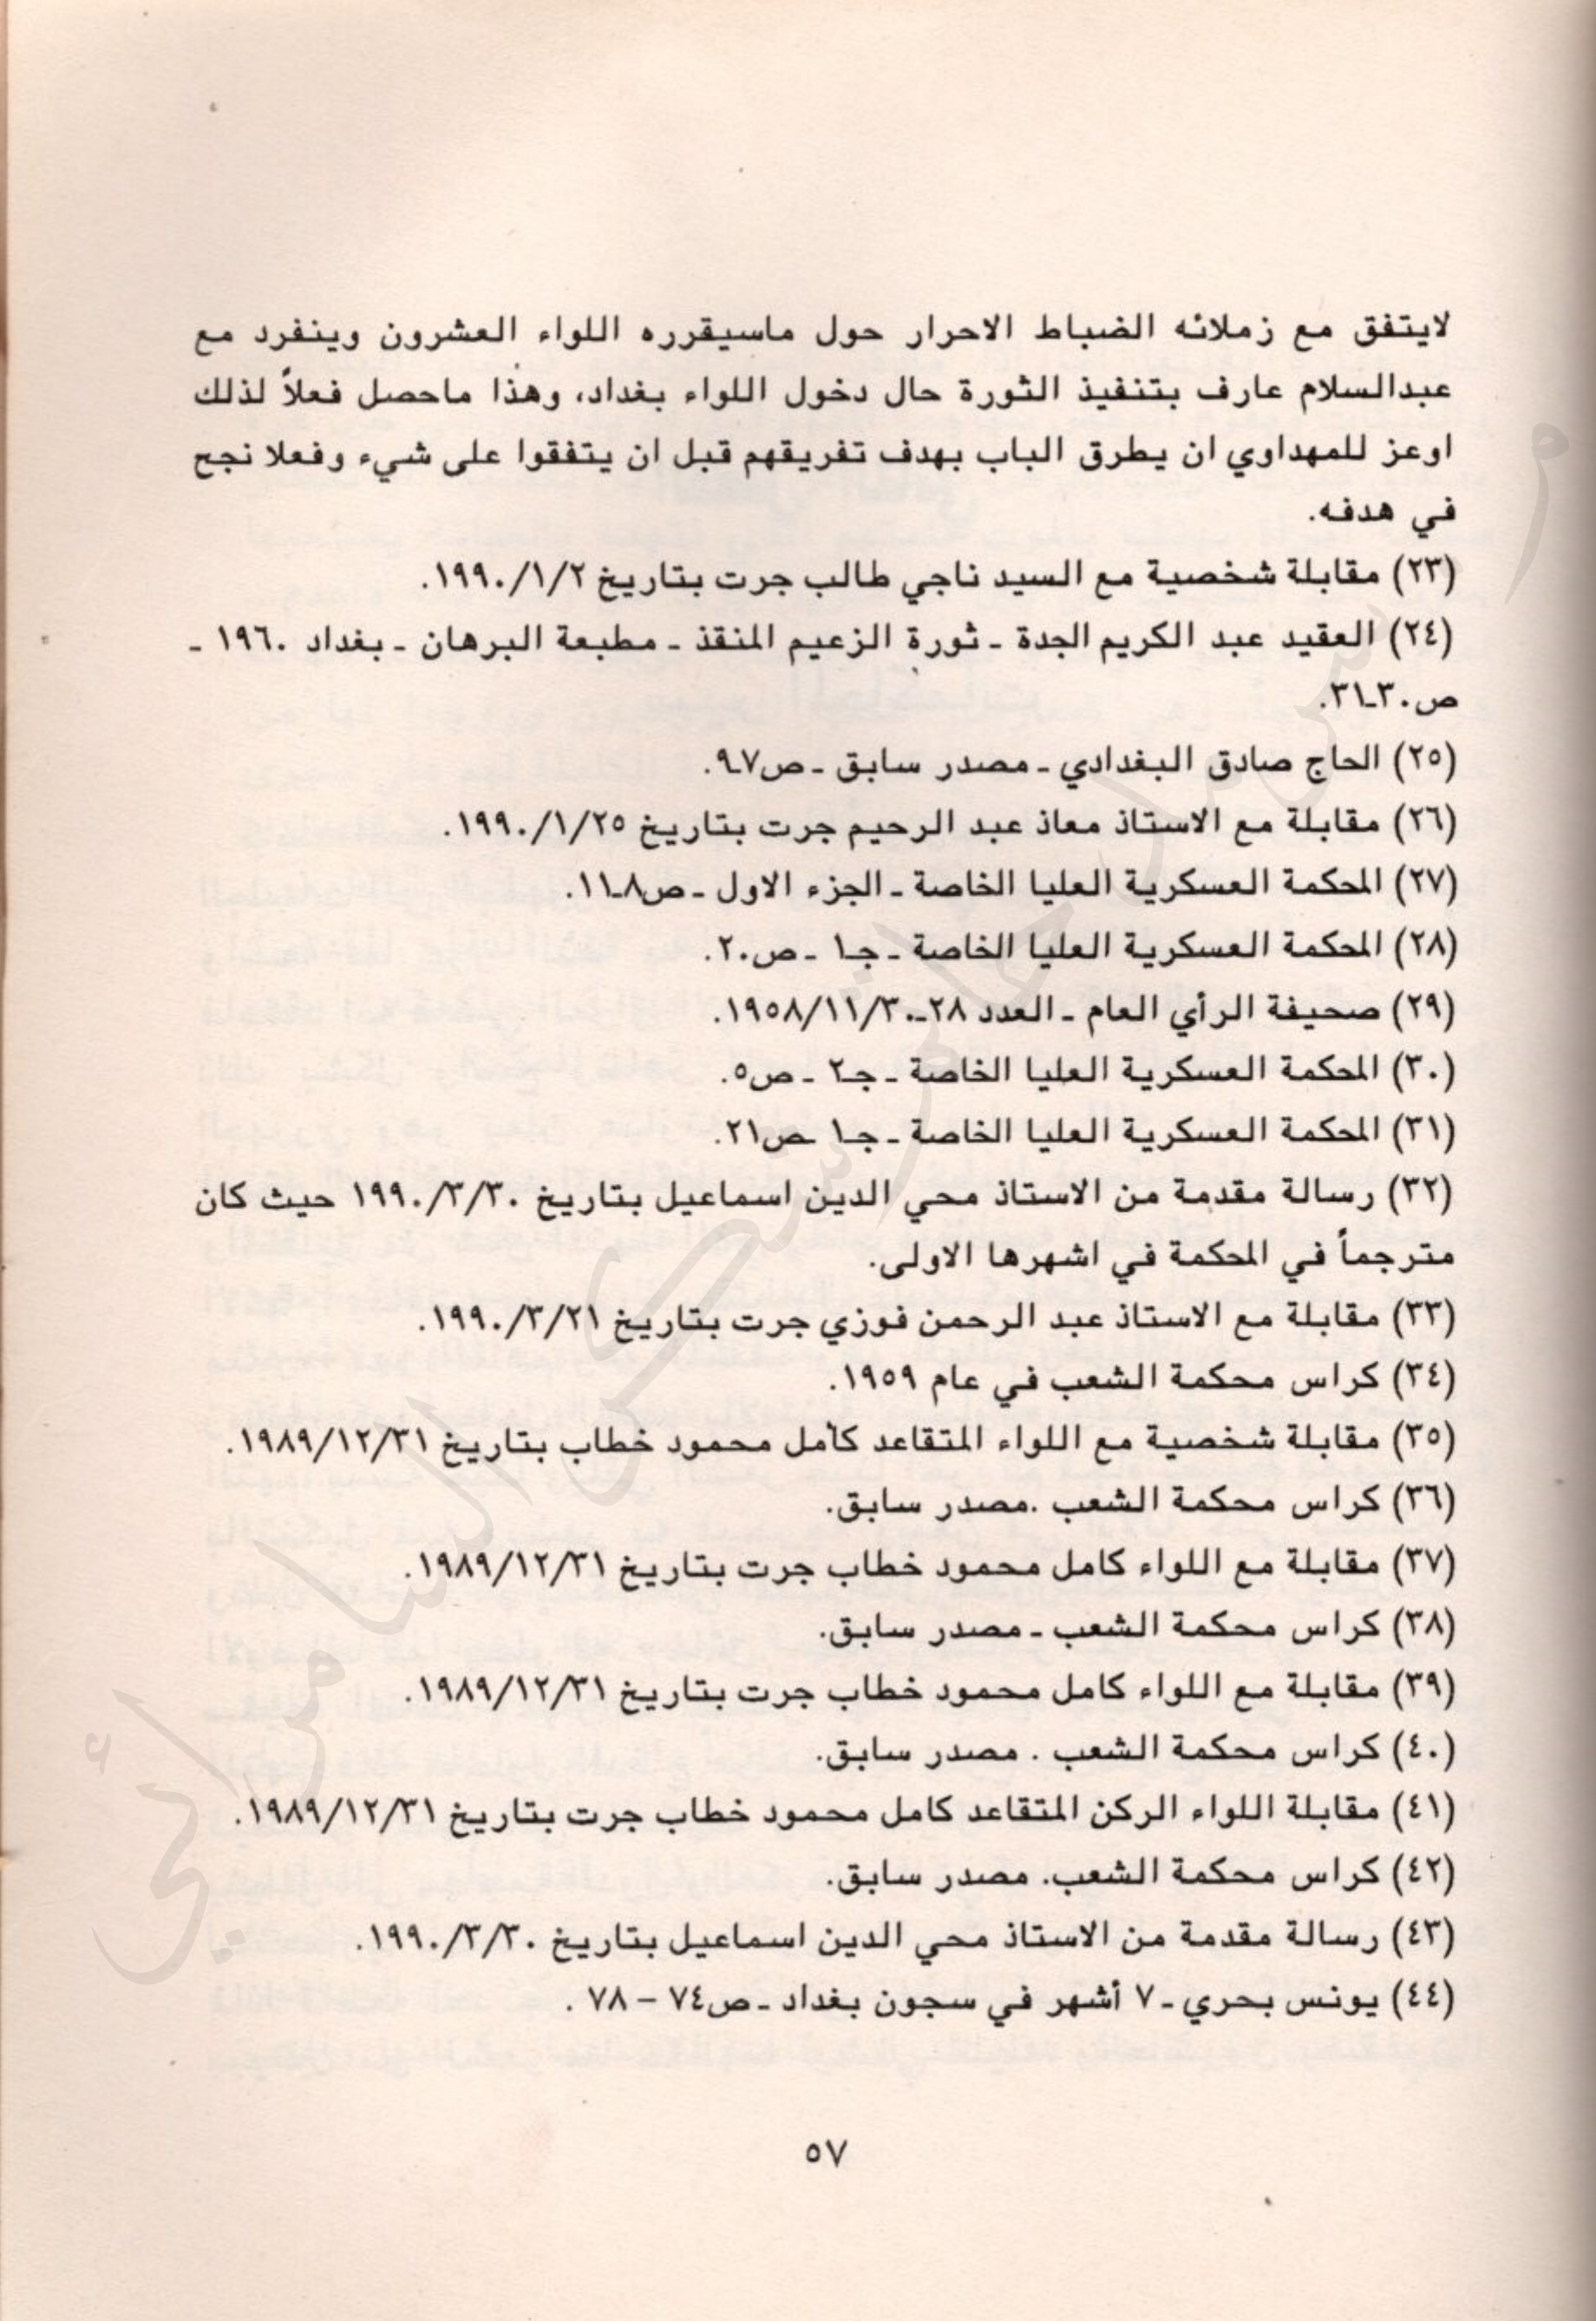 لايتفق مع زملائه الضباط الاحرار حول ماسيقرره اللواء العشرون وينفرد مع
عبدالسلام عارف بتنفيذ الثورة حال دخول اللواء بغداد، وهذا ماحصل فعلاً لذلك
اوعز للمهداوي ان يطرق الباب بهدف تفريقهم قبل ان يتفقوا على شيء وفعلا نجح
في هدفه.
(٢٣) مقابلة شخصية مع السيد ناجي طالب جرت بتاريخ ١٩٩٠/١/٢.
(٢٤) العقيد عبد الكريم الجدة ـ ثورة الزعيم المنقذ ـ مطبعة البرهان ـ بغداد ١٩٦٠ ـ
ص٣٠ـ٣١.
(٢٥) الحاج صادق البغدادي ـ مصدر سابق ـ ص٩٧.
(٢٦) مقابلة مع الاستاذ معاذ عبد الرحيم جرت بتاريخ ١٩٩٠/١/٢٥.
(٢٧) المحكمة العسكرية العليا الخاصة ـ الجزء الاول ـ ص٨ـ١١.
(٢٨) المحكمة العسكرية العليا الخاصة ـ جـ١ ـ ص٢٠.
(٢٩) صحيفة الرأي العام ـ العدد ٢٨ـ١٩٥٨/١١/٣٠.
(٣٠) المحكمة العسكرية العليا الخاصة ـ جـ٢ ـ ص٥.
(٣١) المحكمة العسكرية العليا الخاصة ـ جـ١ ـص٢١.
(٣٢) رسالة مقدمة من الاستاذ محي الدين اسماعيل بتاريخ ١٩٩٠/٣/٣٠ حيث كان
مترجماً في المحكمة في اشهرها الاولى.
(٣٣) مقابلة مع الاستاذ عبد الرحمن فوزي جرت بتاريخ ١٩٩٠/٣/٢١.
(٣٤) كراس محكمة الشعب في عام ١٩٥٩.
(٣٥) مقابلة شخصية مع اللواء المتقاعد كامل محمود خطاب بتاريخ ١٩٨٩/١٢/٣١.
(٣٦) كراس محكمة الشعب .مصدر سابق.
(٣٧) مقابلة مع اللواء كامل محمود خطاب جرت بتاريخ ١٩٨٩/١٢/٣١.
(٣٨) كراس محكمة الشعب ـ مصدر سابق.
(٣٩) مقابلة مع اللواء كامل محمود خطاب جرت بتاريخ ١٩٨٩/١٢/٣١.
(٤٠) كراس محكمة الشعب . مصدر سابق.
(٤١) مقابلة اللواء الركن المتقاعد كامل محمود خطاب جرت بتاريخ ١٩٨٩/١٢/٣١.
(٤٢) كراس محكمة الشعب. مصدر سابق.
(٤٣) رسالة مقدمة من الاستاذ محي الدين اسماعيل بتاريخ ١٩٩٠/٣/٣٠.
(٤٤) يونس بحري ـ ٧ أشهر في سجون بغداد ـ ص٧٤ – ٧٨ .
٥٧